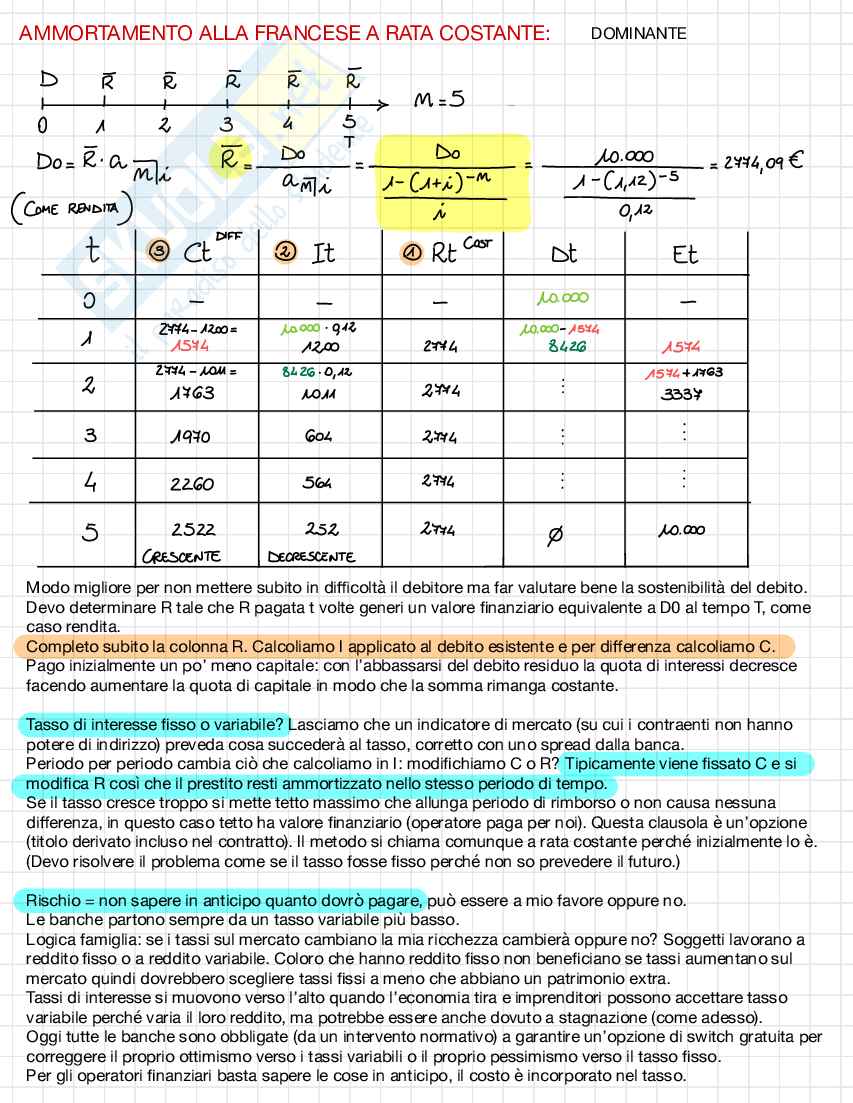 AMMORTAMENTO ALLA FRANCESE A RATA COSTANTE: DOMINANTE
D R̅ R̅ R̅ R̅ R̅
0 1 2 3 4 5 m = 5
T
Do = R̅ · a m̅|i R̅ = Do / a m̅|i = Do / ((1-(1+i)^-m) / i) = 10.000 / ((1-(1,12)^-5) / 0,12) = 2774,09 €
(COME RENDITA)
t ③ Ct DIFF ② It ① Rt COST Dt Et
0 — — — 10.000 —
2774-1200= 10.000 · 0,12 10.000-1574
1 1574 1200 2774 8426 1574
2774-1011= 8426 · 0,12 1574+1763
2 1763 1011 2774 ⋮ 3337
3 1970 604 2774 ⋮ ⋮
4 2260 564 2774 ⋮ ⋮
5 2522 252 2774 ∅ 10.000
CRESCENTE DECRESCENTE
Modo migliore per non mettere subito in difficoltà il debitore ma far valutare bene la sostenibilità del debito.
Devo determinare R tale che R pagata t volte generi un valore finanziario equivalente a D0 al tempo T, come
caso rendita.
Completo subito la colonna R. Calcoliamo I applicato al debito esistente e per differenza calcoliamo C.
Pago inizialmente un po' meno capitale: con l'abbassarsi del debito residuo la quota di interessi decresce
facendo aumentare la quota di capitale in modo che la somma rimanga costante.
Tasso di interesse fisso o variabile? Lasciamo che un indicatore di mercato (su cui i contraenti non hanno
potere di indirizzo) preveda cosa succederà al tasso, corretto con uno spread dalla banca.
Periodo per periodo cambia ciò che calcoliamo in I: modifichiamo C o R? Tipicamente viene fissato C e si
modifica R così che il prestito resti ammortizzato nello stesso periodo di tempo.
Se il tasso cresce troppo si mette tetto massimo che allunga periodo di rimborso o non causa nessuna
differenza, in questo caso tetto ha valore finanziario (operatore paga per noi). Questa clausola è un'opzione
(titolo derivato incluso nel contratto). Il metodo si chiama comunque a rata costante perché inizialmente lo è.
(Devo risolvere il problema come se il tasso fosse fisso perché non so prevedere il futuro.)
Rischio = non sapere in anticipo quanto dovrò pagare, può essere a mio favore oppure no.
Le banche partono sempre da un tasso variabile più basso.
Logica famiglia: se i tassi sul mercato cambiano la mia ricchezza cambierà oppure no? Soggetti lavorano a
reddito fisso o a reddito variabile. Coloro che hanno reddito fisso non beneficiano se tassi aumentano sul
mercato quindi dovrebbero scegliere tassi fissi a meno che abbiano un patrimonio extra.
Tassi di interesse si muovono verso l'alto quando l'economia tira e imprenditori possono accettare tasso
variabile perché varia il loro reddito, ma potrebbe essere anche dovuto a stagnazione (come adesso).
Oggi tutte le banche sono obbligate (da un intervento normativo) a garantire un'opzione di switch gratuita per
correggere il proprio ottimismo verso i tassi variabili o il proprio pessimismo verso il tasso fisso.
Per gli operatori finanziari basta sapere le cose in anticipo, il costo è incorporato nel tasso.